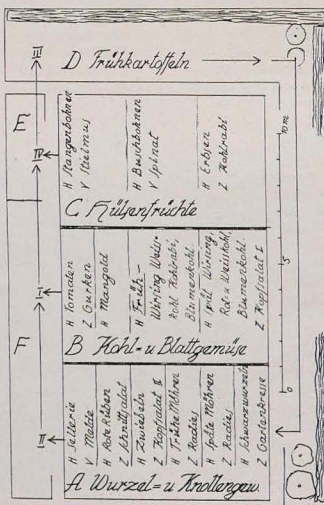 D Frühkartoffeln
III
E
IV
H Stangenbohnen
V Stielmus
H Buschbohnen
V Spinat
H Erbsen
Z Kohlrabi
C Hülsenfrüchte
10 m
5
0
F
I
H Tomaten
Z Gurken
H Mangold
H Früh-
Wirsing Weiss-
kohl Kohlrabi,
Blumenkohl
H Spät Wirsing,
Rot- u Weisskohl,
Blumenkohl
Z Kopfsalat I
B Kohl- u Blattgemüse
II
H Sellerie
V Melde
H Rote Rüben
Z Schnittsalat
H Zwiebeln
Z Kopfsalat II
H Frühe Möhren
Z Radies
H Späte Möhren
Z Radies
H Schwarzwurzeln
Z Gartenkresse
A Wurzel- u Knollengew.